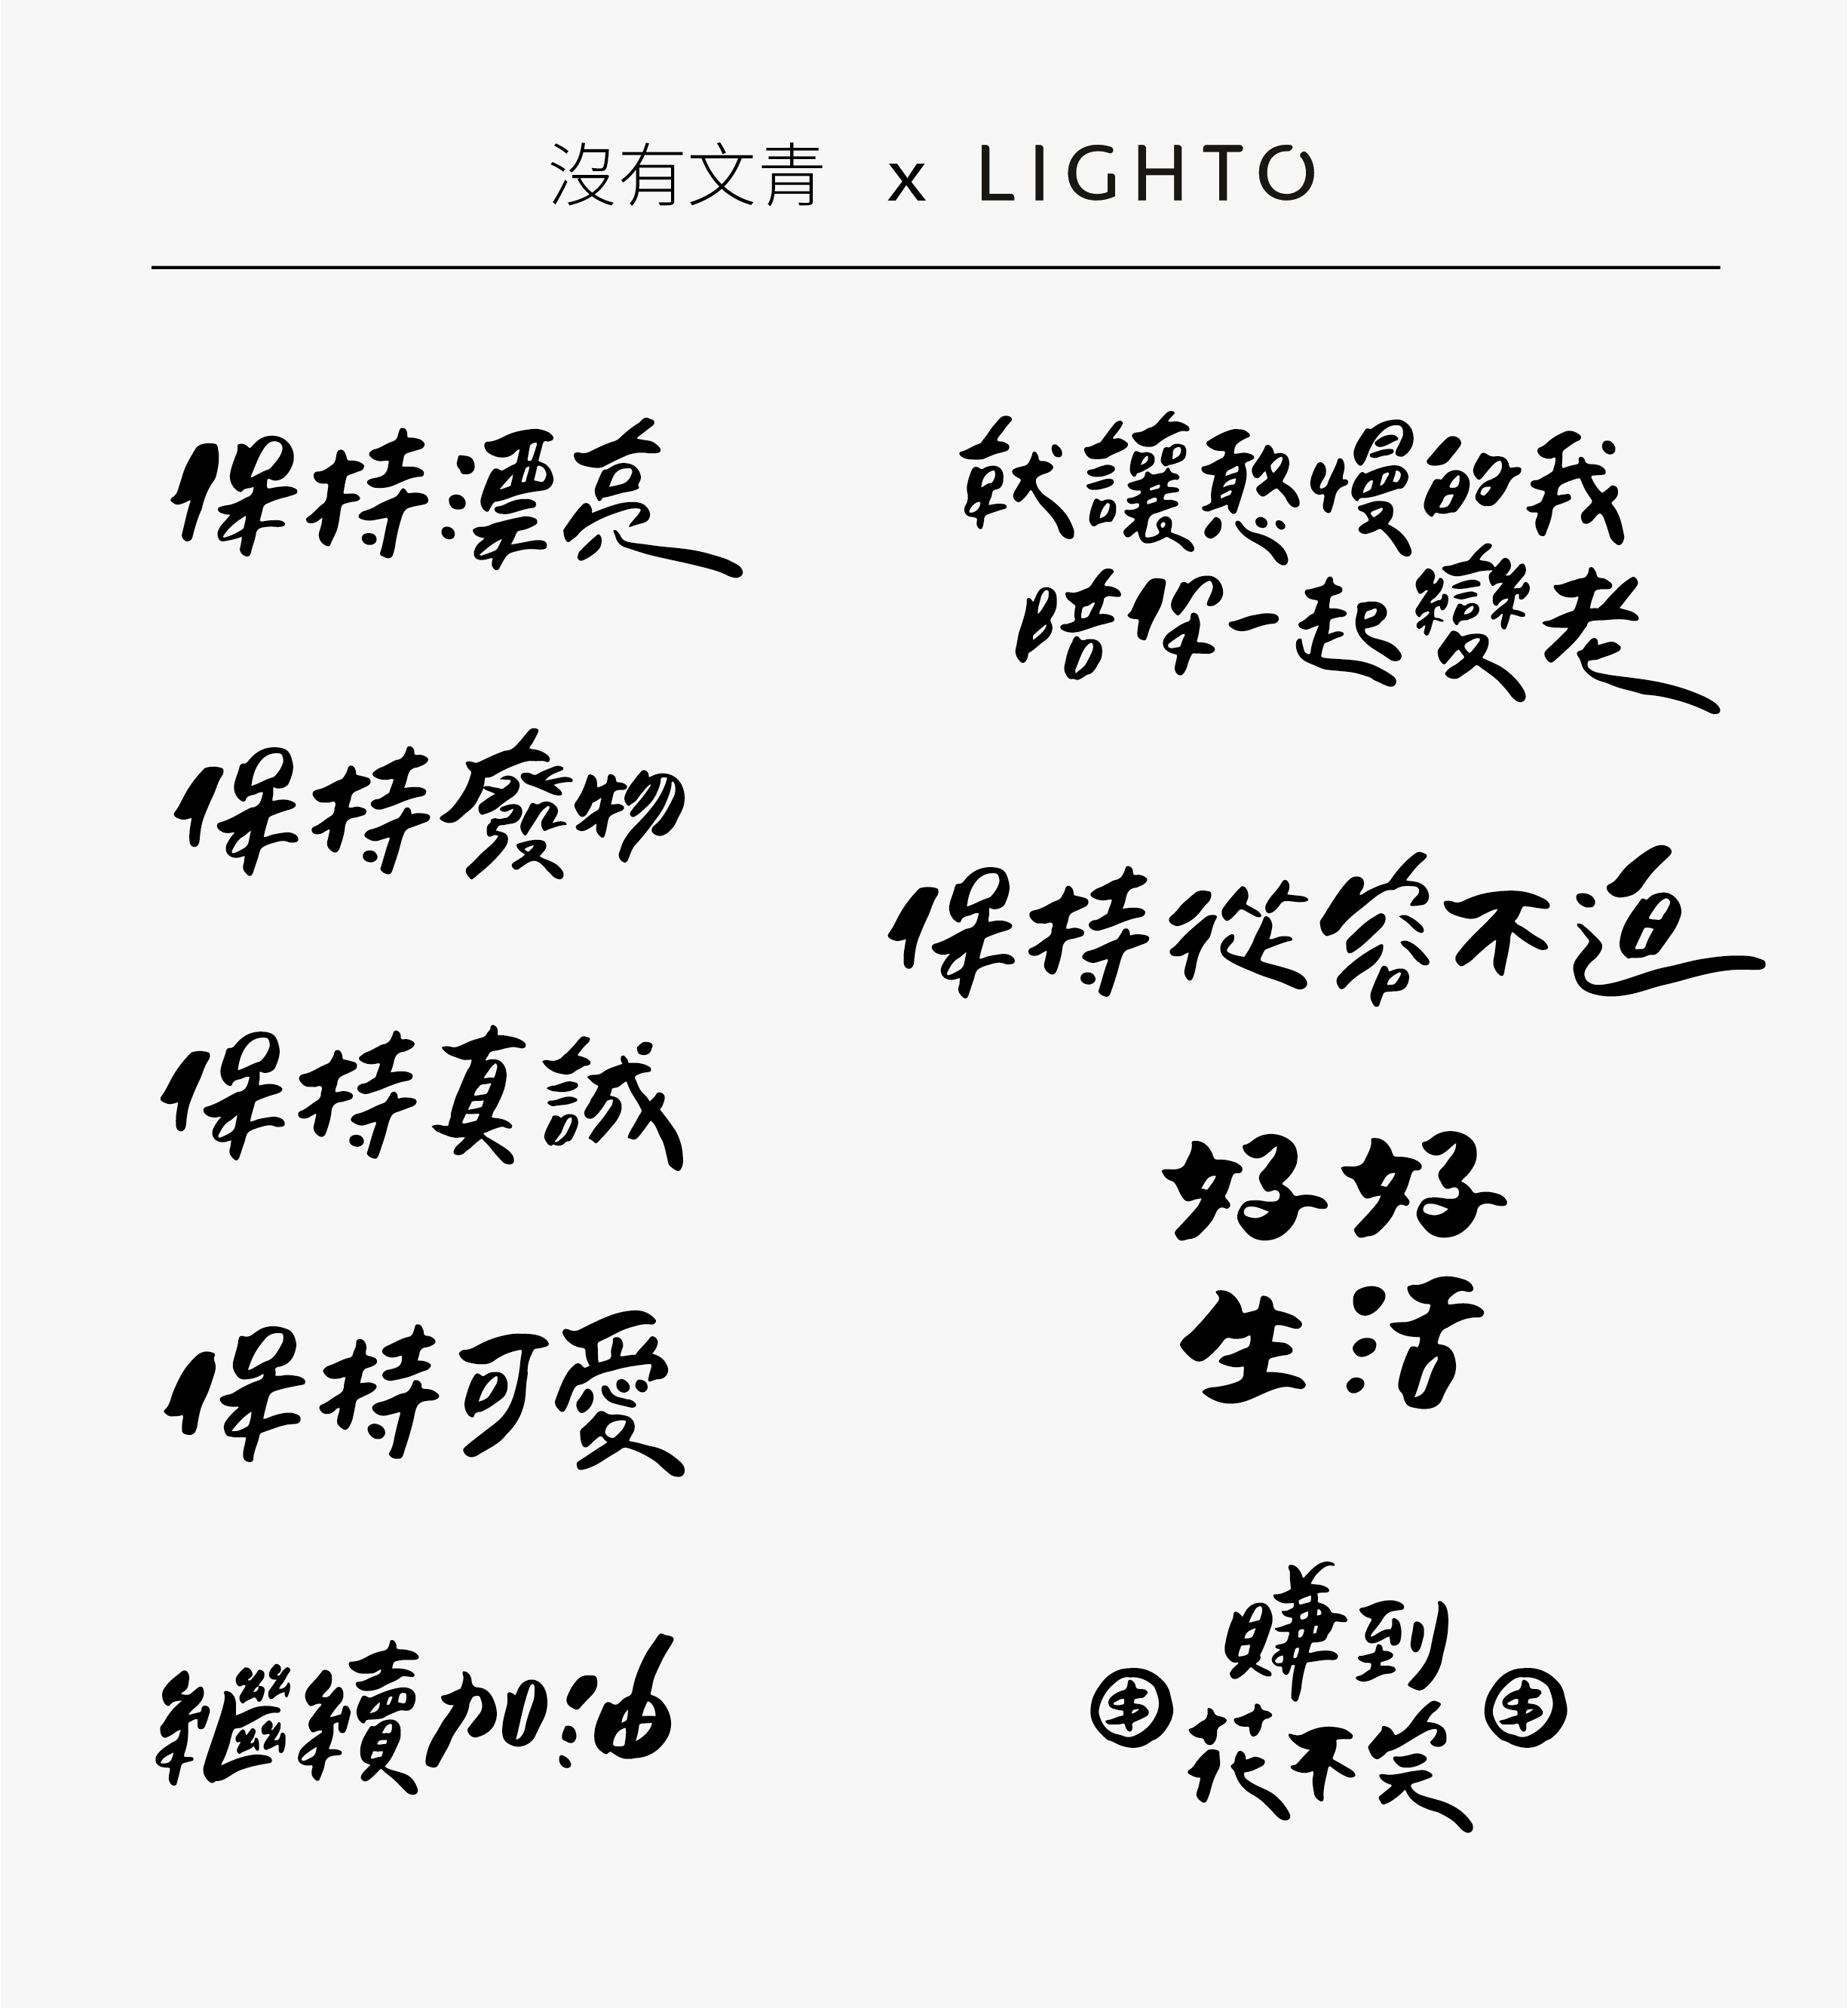 沒有文青 x LIGHTO
保持漂亮
就讓憨慢的我
陪你一起變老
保持廢物
保持從容不迫
保持真誠
好好
生活
保持可愛
繼續加油
賺到
花不完